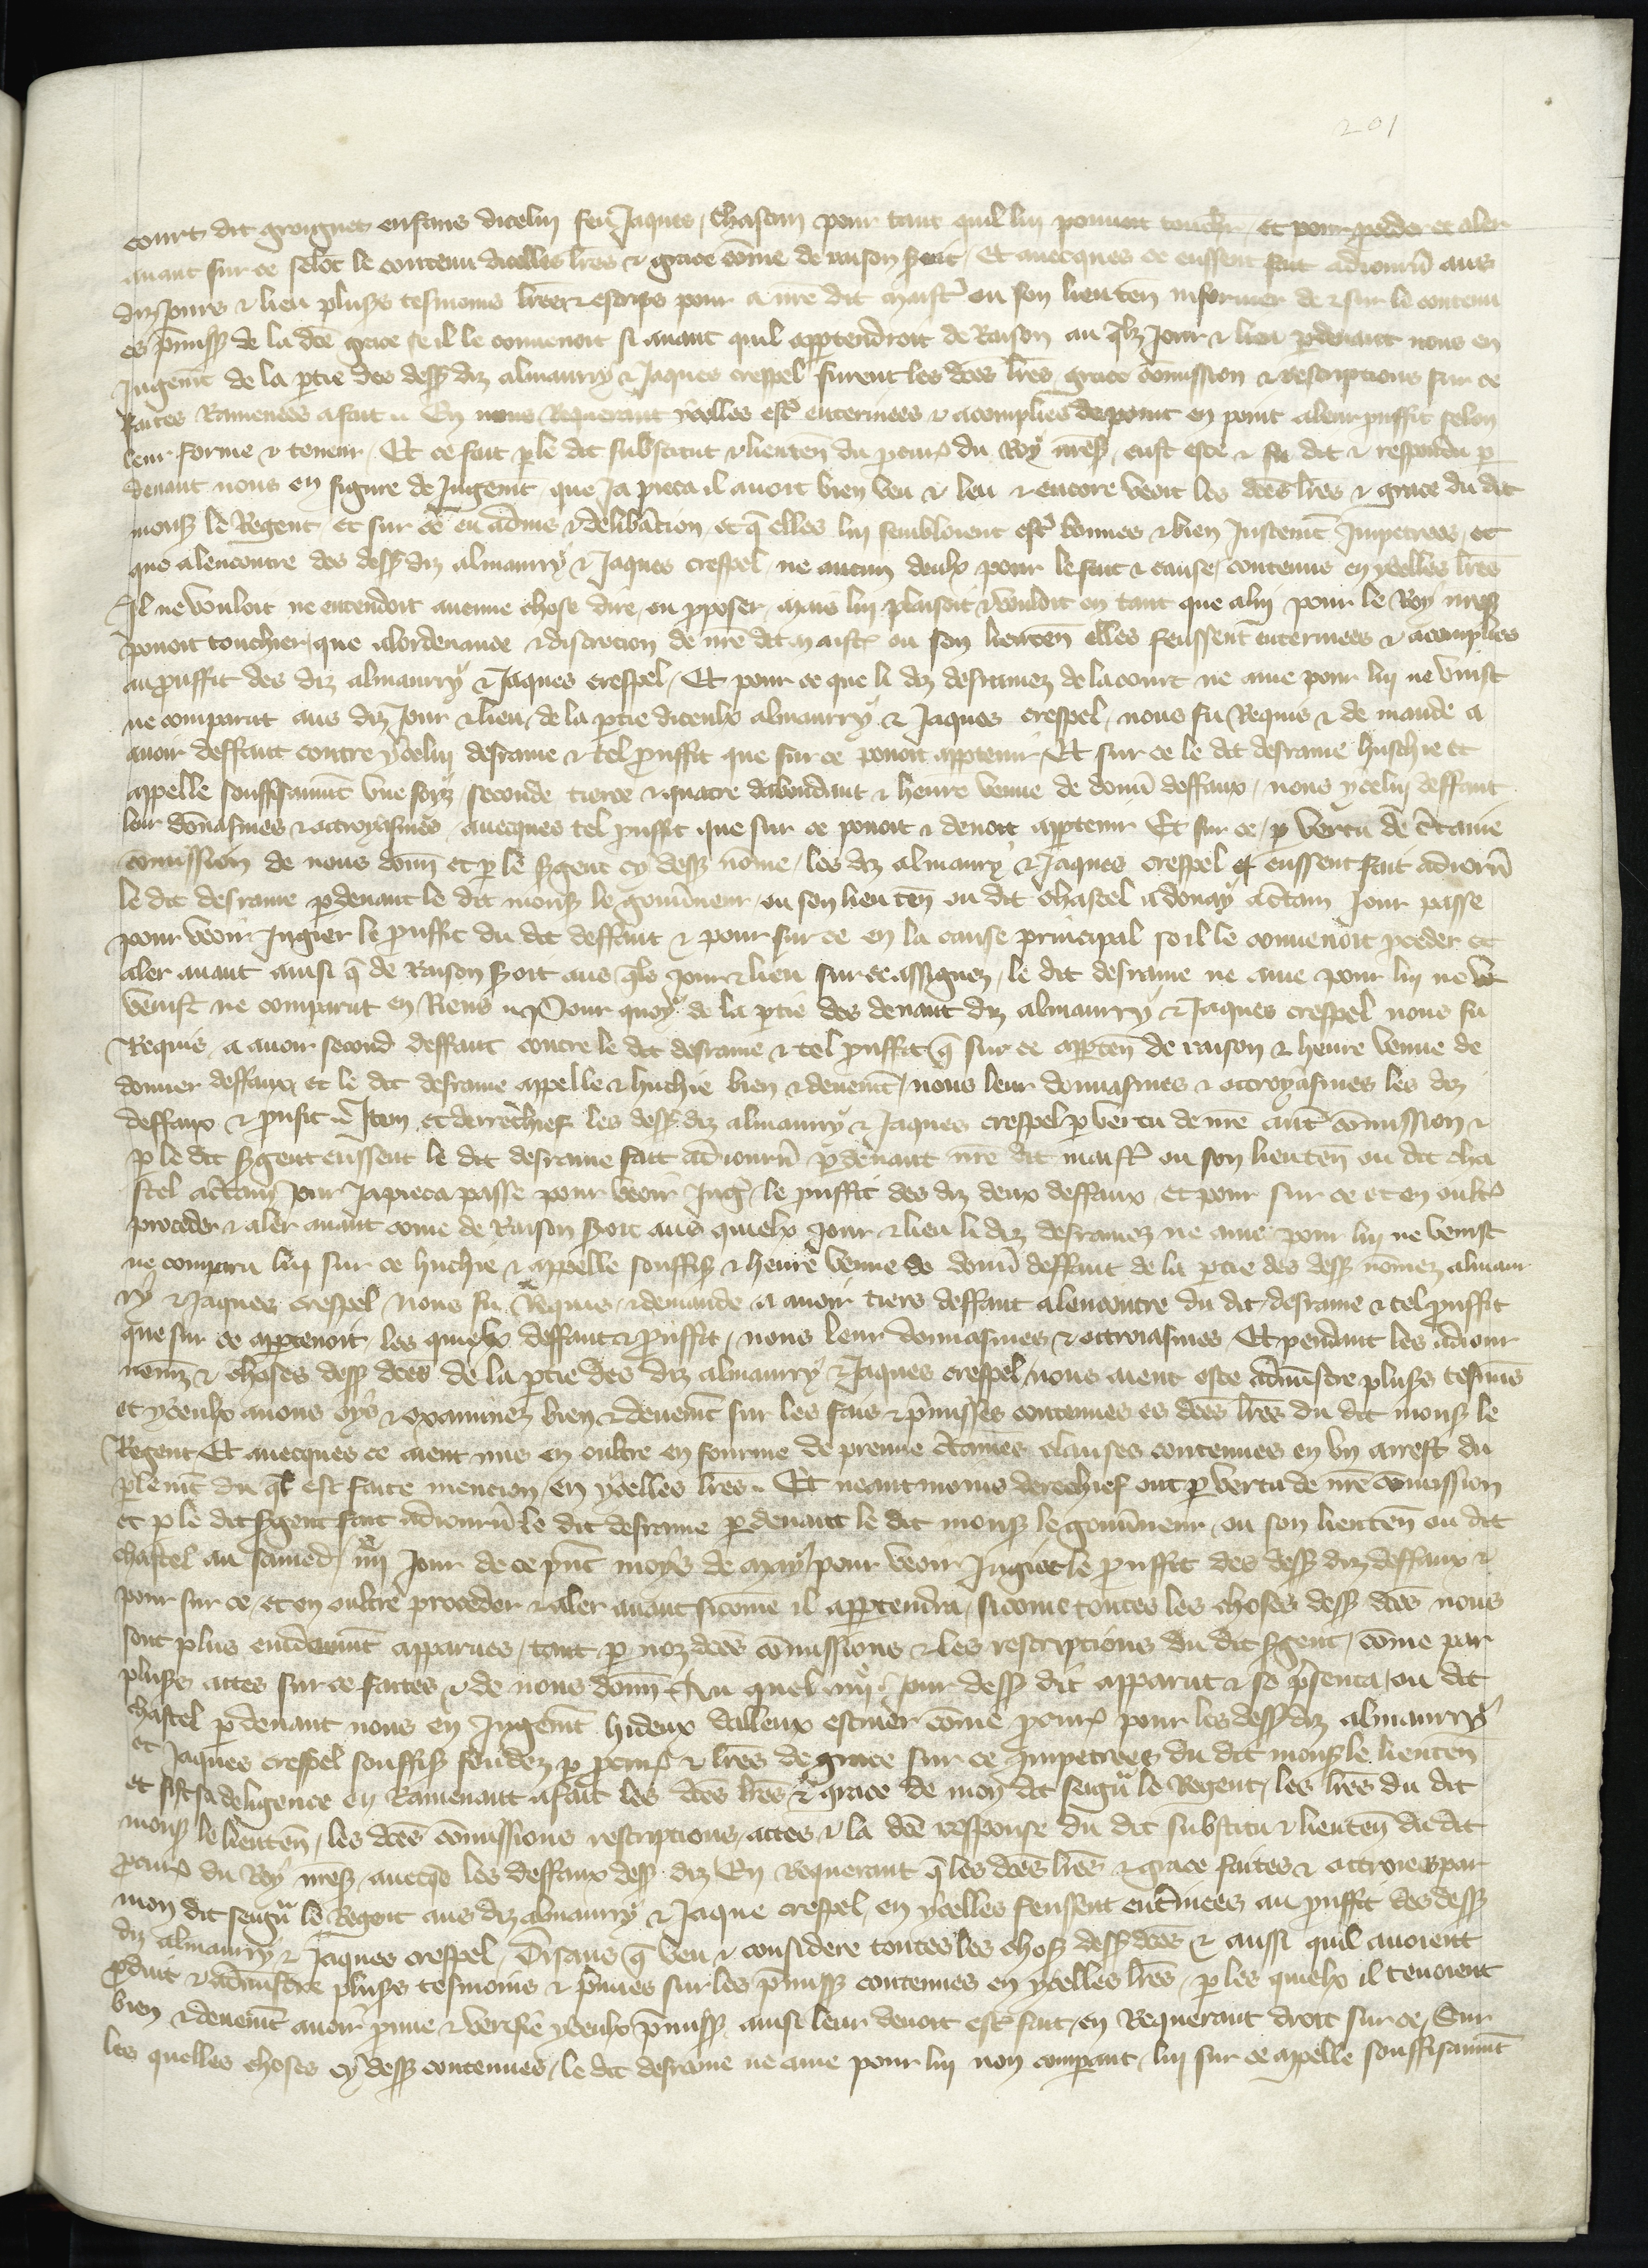 201
court dit groignet enfans dicelui feu Jaques / Chascun pour tant quil lui pouuoit touch / et pour pceder et aler
auant sur ce selōc le contenu dicelles lr̄es & grace cōme de raison s̄oit / Et auecques ce eussent fait adiourn̄ aus
diz Jours & lieu plus̄s tesmoins lr̄es & escrips pour a nr̄e dit maistr̄ ou son lieuten̄ informer de & sur le contenu
es p̄miss̄ de la dc̄e grace se il le conuenoit si auant quil app̱tendroit de Raison au q̄lz Jour & lieu p̱ deuant nous en
Jugem̄t de la p̱tie des dess̄ diz almaurry & Jaques crespel furent les dc̄es lr̄es grace cōmission & rescriptions sur ce
faites Ramenees a fait .. En nous Requerant ycelles estr̄ enterinees & acomplies de point en point a leur p̱uffit selon
leur forme & teneur . Et ce fait p̱ le dit substitut & lieuten̄ du p̱cur̄ du Roy nr̄es̄ . eust este & fu dit & respondu p̱
deuant nous en figure de Jugem̄t que Ja pieca il auoit bien veu & leu & encore veoit les dc̄es lr̄es & grace du dit
mons̄ le Regent / et sur ce eu aduis & delibāciō et q̄ elles lui sembloient estr̄ bonnes & bien Justem̄t Impetrees / et
que alencontre des dess̄ diz almaurry & Jaques crespel / ne aucun deulx pour le fait & cause contenue en ycelles lr̄es
Il ne vouloit ne entendoit aucune chose dire / ou p̱poser . mais lui plaisoit & vouloit en tant que a lui pour le Roy nr̄es̄
pouoit touchier que a lordenance & discrecion de nr̄e dit maistr̄ ou son lieuten̄ elles feussent enterinees & acomplies
au p̱uffit des diz almaurry & Jaques crespel / Et pour ce que li diz desramez de la court ne auc̄ pour lui ne vinst
ne comparut aus diz Jour & lieu / de la p̱tie diceulx almaurry & Jaques crespel / nous fu Requis & de mande a
auoir deffaut contre ycelui desrame & tel p̱uffit que sur ce pouoit app̱tenir Et sur ce le dit desrame huschie et
appelle souffisanm̄t vne foiz seconde tierce & quarte dabondant & heure venue de donn̄ deffaux / nous ycelui deffaut
leur donnasmes & ottroyasmes / auecques tel p̱uffit que sur ce pouoit & deuoit app̱tenir Et sur ce / p̱ vertu de c̄taine
cōmission de nous donn̄ et p̱ le s̄gent cy dess̄ nōme / les diz almaurry & Jaques crespel eussent fait adiourn̄
le dit desrame p̱ deuant le dit mons̄ le gouu̇neur / ou son lieuten̄ ou dit chastel a douay a c̄tain Jour passe
pour veoir Jugier le p̱uffit du dit deffaut & pour sur ce en la cause principal se il le conuenoit p̱ceder et
aler auant ainsi q̄ de Raison s̄oit aus q̄lx Jour & lieu sur ce assignez / le dit desrame ne auc̄ pour lui ne
venist ne comparut en Riens .. Pour quoy de la p̱tie des deuant diz almaurry & Jaques crespel nous fu
Requis a auoir second deffaut contre le dit desrame & tel p̱uffit q̄ sur ce app̱ten̄ de raison & heure venue de
donner deffaux et le dit desrame appelle & huchie bien & deuem̄t / nous leur donnasmes & ottroyasmes les diz
deffaux & p̱ufit .. Item et derrechief les dess̄ diz almaurry & Jaques crespel p̱ vertu de nr̄e autr̄ cōmission &
p̱ le dit s̄gent eussent le dit desrame fait adiourn̄ p̱ deuant nr̄e dit maistr̄ ou son lieuten̄ ou dit cha
stel a c̄tain Jour Ja pieca passe pour veoir Jug̱ le p̱uffit des diz deux deffaux et pour sur ce et en oultr̄
proceder & aler auant cōme de Raison s̄oit aus quielx Jour & lieu li diz desramez ne auc̄ pour lui ne venist
ne comparu lui sur ce huchie & appelle souffis̄ & heure venue de donn̄ deffaut de la p̱tie des dess̄ nōmez almaur
ry & Jaques crespel Nous fu Requis & demande a auoir tiers deffaut alencontre du dit desrame & tel p̱uffit
que sur ce app̱tenoit / les quielx deffaut & p̱uffit / nous leur donnasmes & ottroiasmes Et pendant les adiour
nem̄z & choses dess̄ dc̄es de la p̱tie des diz almaurry & Jaques crespel nous aient este adm̄stre plus̄s tesmōs
et yceulx auons oys & examinez bien & deuem̄t sur les fais & p̄misses contenues es dc̄es lr̄es du dit mons̄ le
Regent Et auecques ce aient mis en oultre en fourme de preuue c̄taines clauses contenues en vn arrest du
p̱lem̄t du q̄l est faite mencion en ycelles lr̄es .. Et neantmoins derechief ont p̱ vertu de nr̄e cōmission
et p̱ le dit s̄gent fait adiourn̄ le dit desrame p̱ deuant le dit mons̄ le gouu̇neur / ou son lieuten̄ ou dit
chastel au samedi iiijͤ Jour de ce p̄nt moys de May / pour veoir Jugier le p̱uffit des dess̄ diz deffaux &
pour sur ce / et en oultre proceder & aler auant sicōme il app̱tendra / sicōme toutes les choses dess̄ dc̄es nous
sont plus euidanm̄t apparues / tant p̱ noz dc̄es cōmissions & les rescriptions du dit s̄gent / cōme par
plus̄s actes sur ce faites & de nous donn̄ Au quel iiijͤ Jour dess̄ dit apparut & se p̄senta / ou dit
chastel p̱ deuant nous en Jugem̄t hideux dalleux escuier cōme p̱cur̄ pour les dess̄ diz almaurry
et Jaques crespel souffis̄ fondez p̱ p̱cur̄ & lr̄es de grace sur ce Jmpetrees du dit mons̄ le lieuten̄
et fist sa deligence en Ramenant a fait les dc̄es lr̄es & grace de mon dit seign̄ le Regent / les lr̄es du dit
mons̄ le lieuten̄ / les dc̄es cōmissions rescriptions / actes & la dc̄e response du dit substitu & lieuten̄ du dit
p̱cur̄ du Roy nr̄es̄ auecq̄s les deffaux dess̄ diz En Requerant q̄ les dc̄es lr̄es & grace faites & ottroiees par
mon dit seign̄ le Regent aus diz almaurry & Jaque crespel / en ycelles feussent ent̄inees au p̱uffit des dess̄
diz almaurry & Jaques crespel / Disans q̄ veu & considere toutes les chos̄ dess̄ dc̄es & aussi quil auoient
p̱duit & adm̄stre plus̄s tesmoins & p̄uues sur les p̄miss̄ contenues en ycelles lr̄es / p̱ les quielx il tenoient
bien & deuem̄t auoir p̱uue & verifie yceulx p̄miss̄ ainsi leur deuoit estr̄ fait / en Requerant droit sur ce / Sur
les quelles choses cy dess̄ contenues / le dit desrame ne auc̄ pour lui non comparant / lui sur ce appelle souffisanm̄t